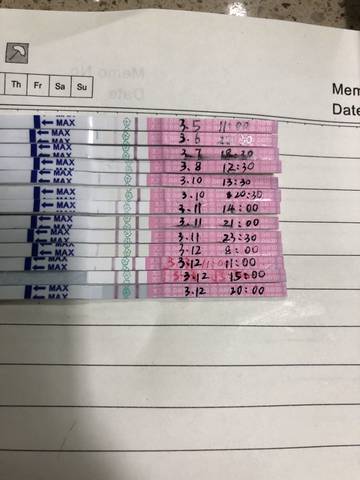 Th Fr Sa Su
Mem
Date
MAX 3.5 11:00
MAX 3.6
MAX 18:30
MAX 3.8 12:30
MAX 3.10 13:30
MAX 3.10 20:30
MAX 3.11 14:00
MAX 3.11 21:00
MAX 3.11 23:30
MAX 3.12 8:00
MAX 3.12 11:00
MAX 3.12 15:00
MAX 3.12 20:00